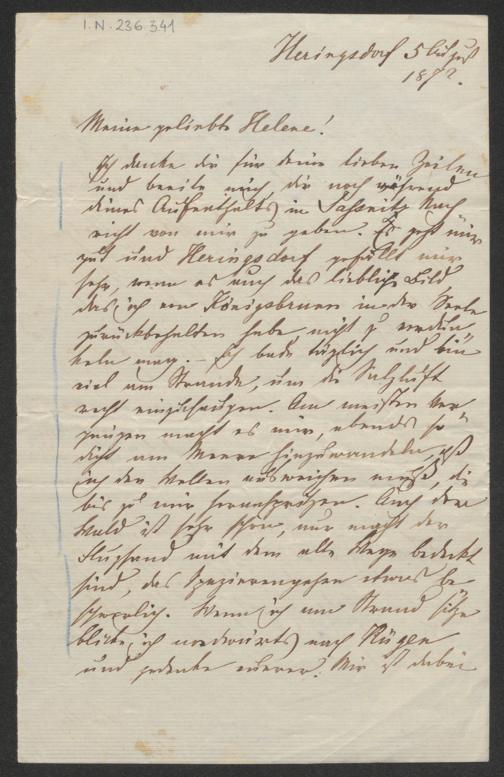 I.N. 236.341
Heringsdorf 5 August
187?.
Meine geliebte Helene!
Ich danke dir für deine lieben Zeilen
und beeile mich, dir noch während
deines Aufenthalts in Sassnitz Nach
richt von mir zu geben. Es geht mir
gut und Heringsdorf gefällt mir
sehr, wenn es auch das liebliche Bild,
das ich von Königsbrunn in der Seele
zurückbehalten habe, nicht zu verdun
keln mag. – Ich bade täglich und bin
viel am Strande, um die Salzluft
recht einzusaugen. Am meisten Ver
gnügen macht es mir, abends so
dicht am Meere hinzuwandeln, daß
ich den Wellen ausweichen muß, die
bis zu mir heranspritzen. Auch der
Wald ist sehr schön, nur macht der
Flugsand mit dem alle Wege bedeckt
sind, das Spazierengehen etwas be
schwerlich. Wenn ich am Strand sitze
blicke ich nordwärts nach Rügen
und gedenke eurer. Mir ist dabei